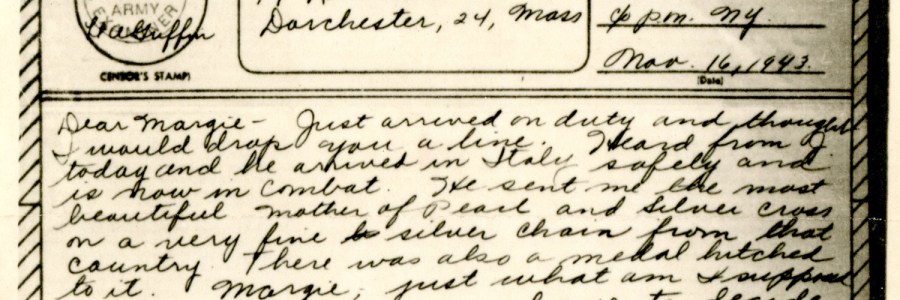 ARMY
EXAMINER
Dorchester, 24, Mass
℅ P.M. N.Y.
CENSOR'S STAMP)
Nov. 16, 1943.
(Date)
Dear Margie - Just arrived on duty and thought
I would drop you a line. Heard from J.
today and he arrived in Italy safely and
is now in combat. He sent me the most
beautiful Mother of Pearl and Silver cross
on a very fine silver chain from that
country. There was also a medal hitched
to it. Margie, just what am I suppose